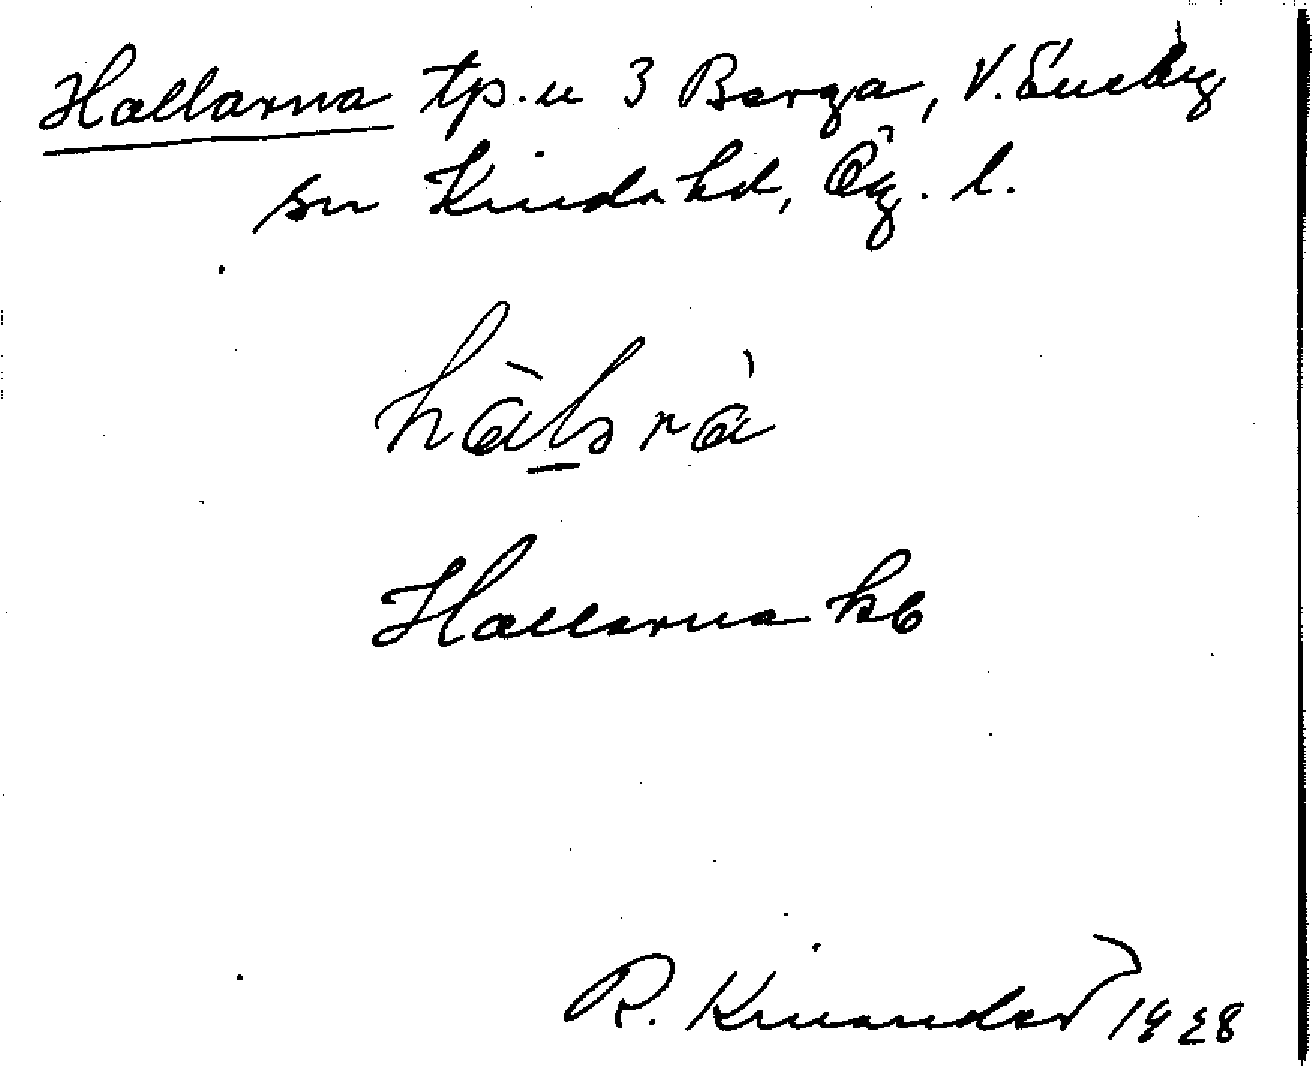 Hallarna tp. u 3 Berga, V. Eneby
sn Kinda hd, Ög. l.
Hallarna hb
R. Kinander 1928